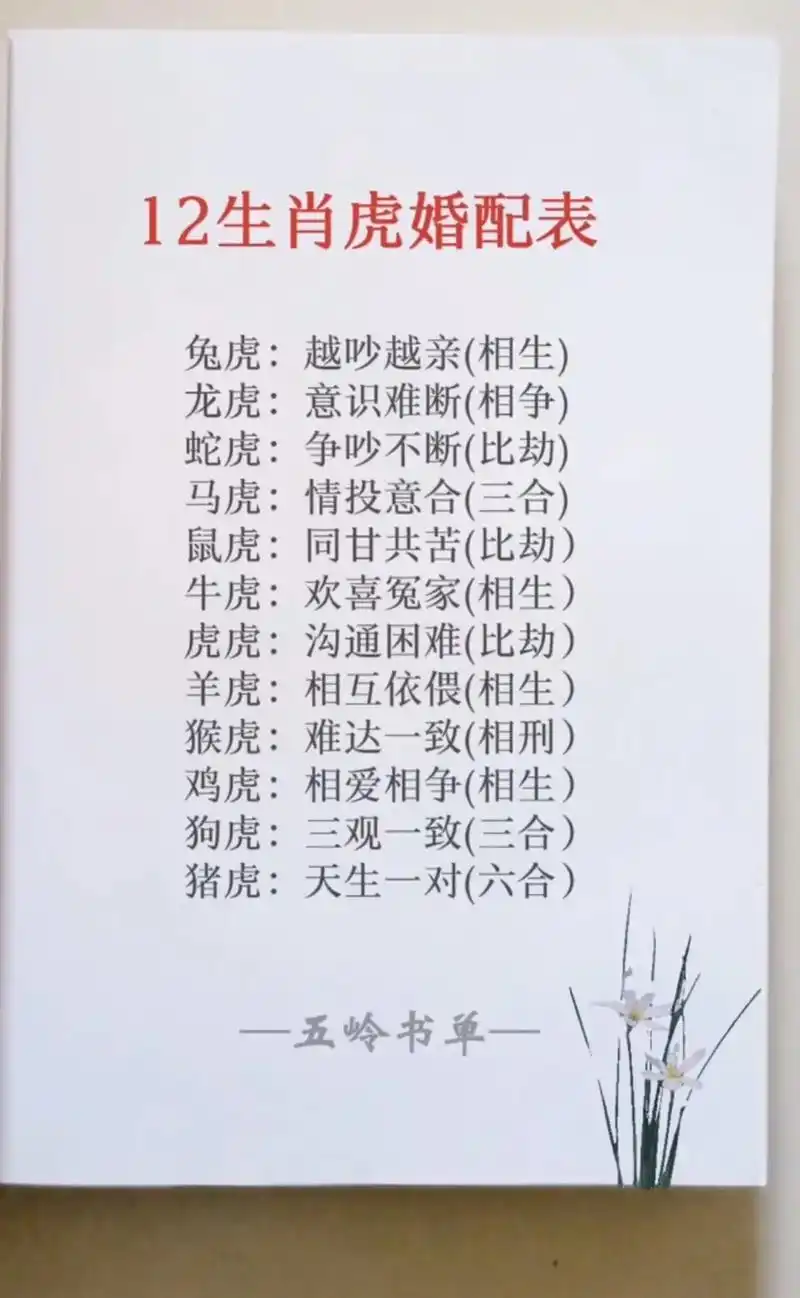 12生肖虎婚配表
兔虎：越吵越亲(相生)
龙虎：意识难断(相争)
蛇虎：争吵不断(比劫)
马虎：情投意合(三合)
鼠虎：同甘共苦(比劫）
牛虎：欢喜冤家(相生）
虎虎：沟通困难(比劫）
羊虎：相互依偎(相生）
猴虎：难达一致(相刑）
鸡虎：相爱相争(相生）
狗虎：三观一致(三合）
猪虎：天生一对(六合）
—五岭书单—